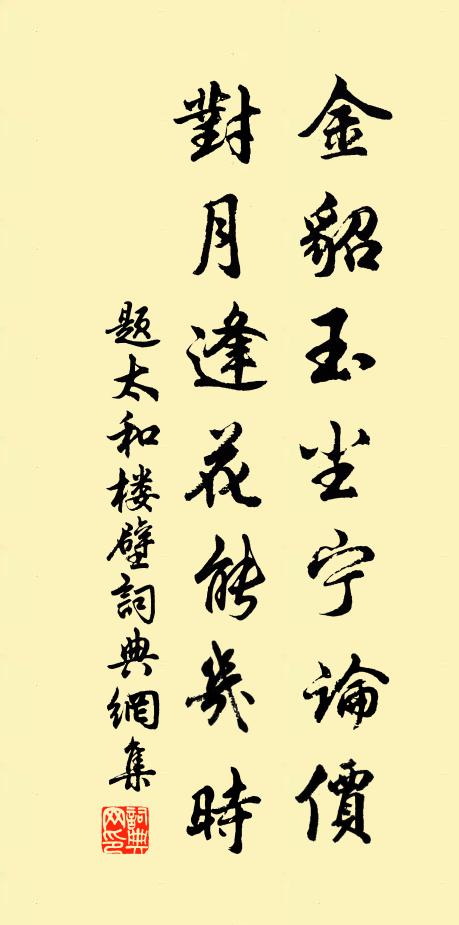 金貂玉尘宁論價
對月逢花能幾時
题太和楼壁詞典網集
詞典网印